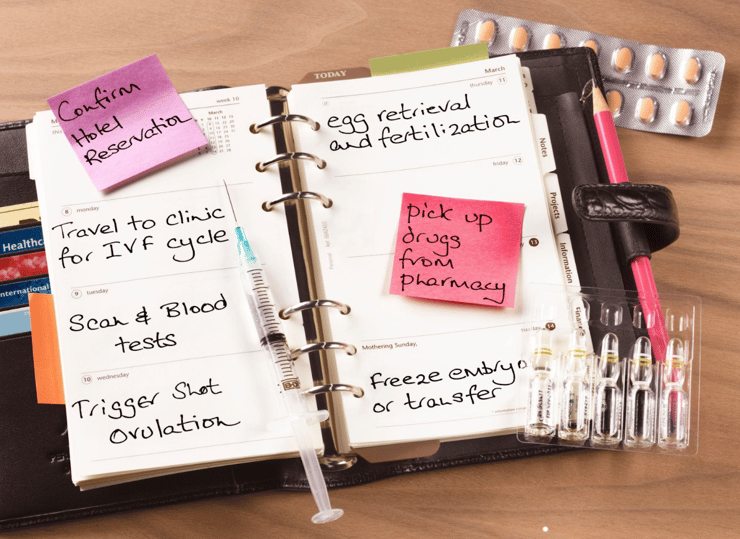 TODAY
week 10
March
Confirm
Hotel
Reservation
8 monday
Travel to clinic
for IVF cycle
9 tuesday
Scan & Blood
tests
10 wednesday
Trigger Shot
Ovulation
March
thursday 11
egg retrieval
and fertilization
friday 12
pick up
drugs
from
pharmacy
13
14
Mothering Sunday,
Freeze embryo
or transfer
Notes
Projects
Information
Finan
Healthc
nternational